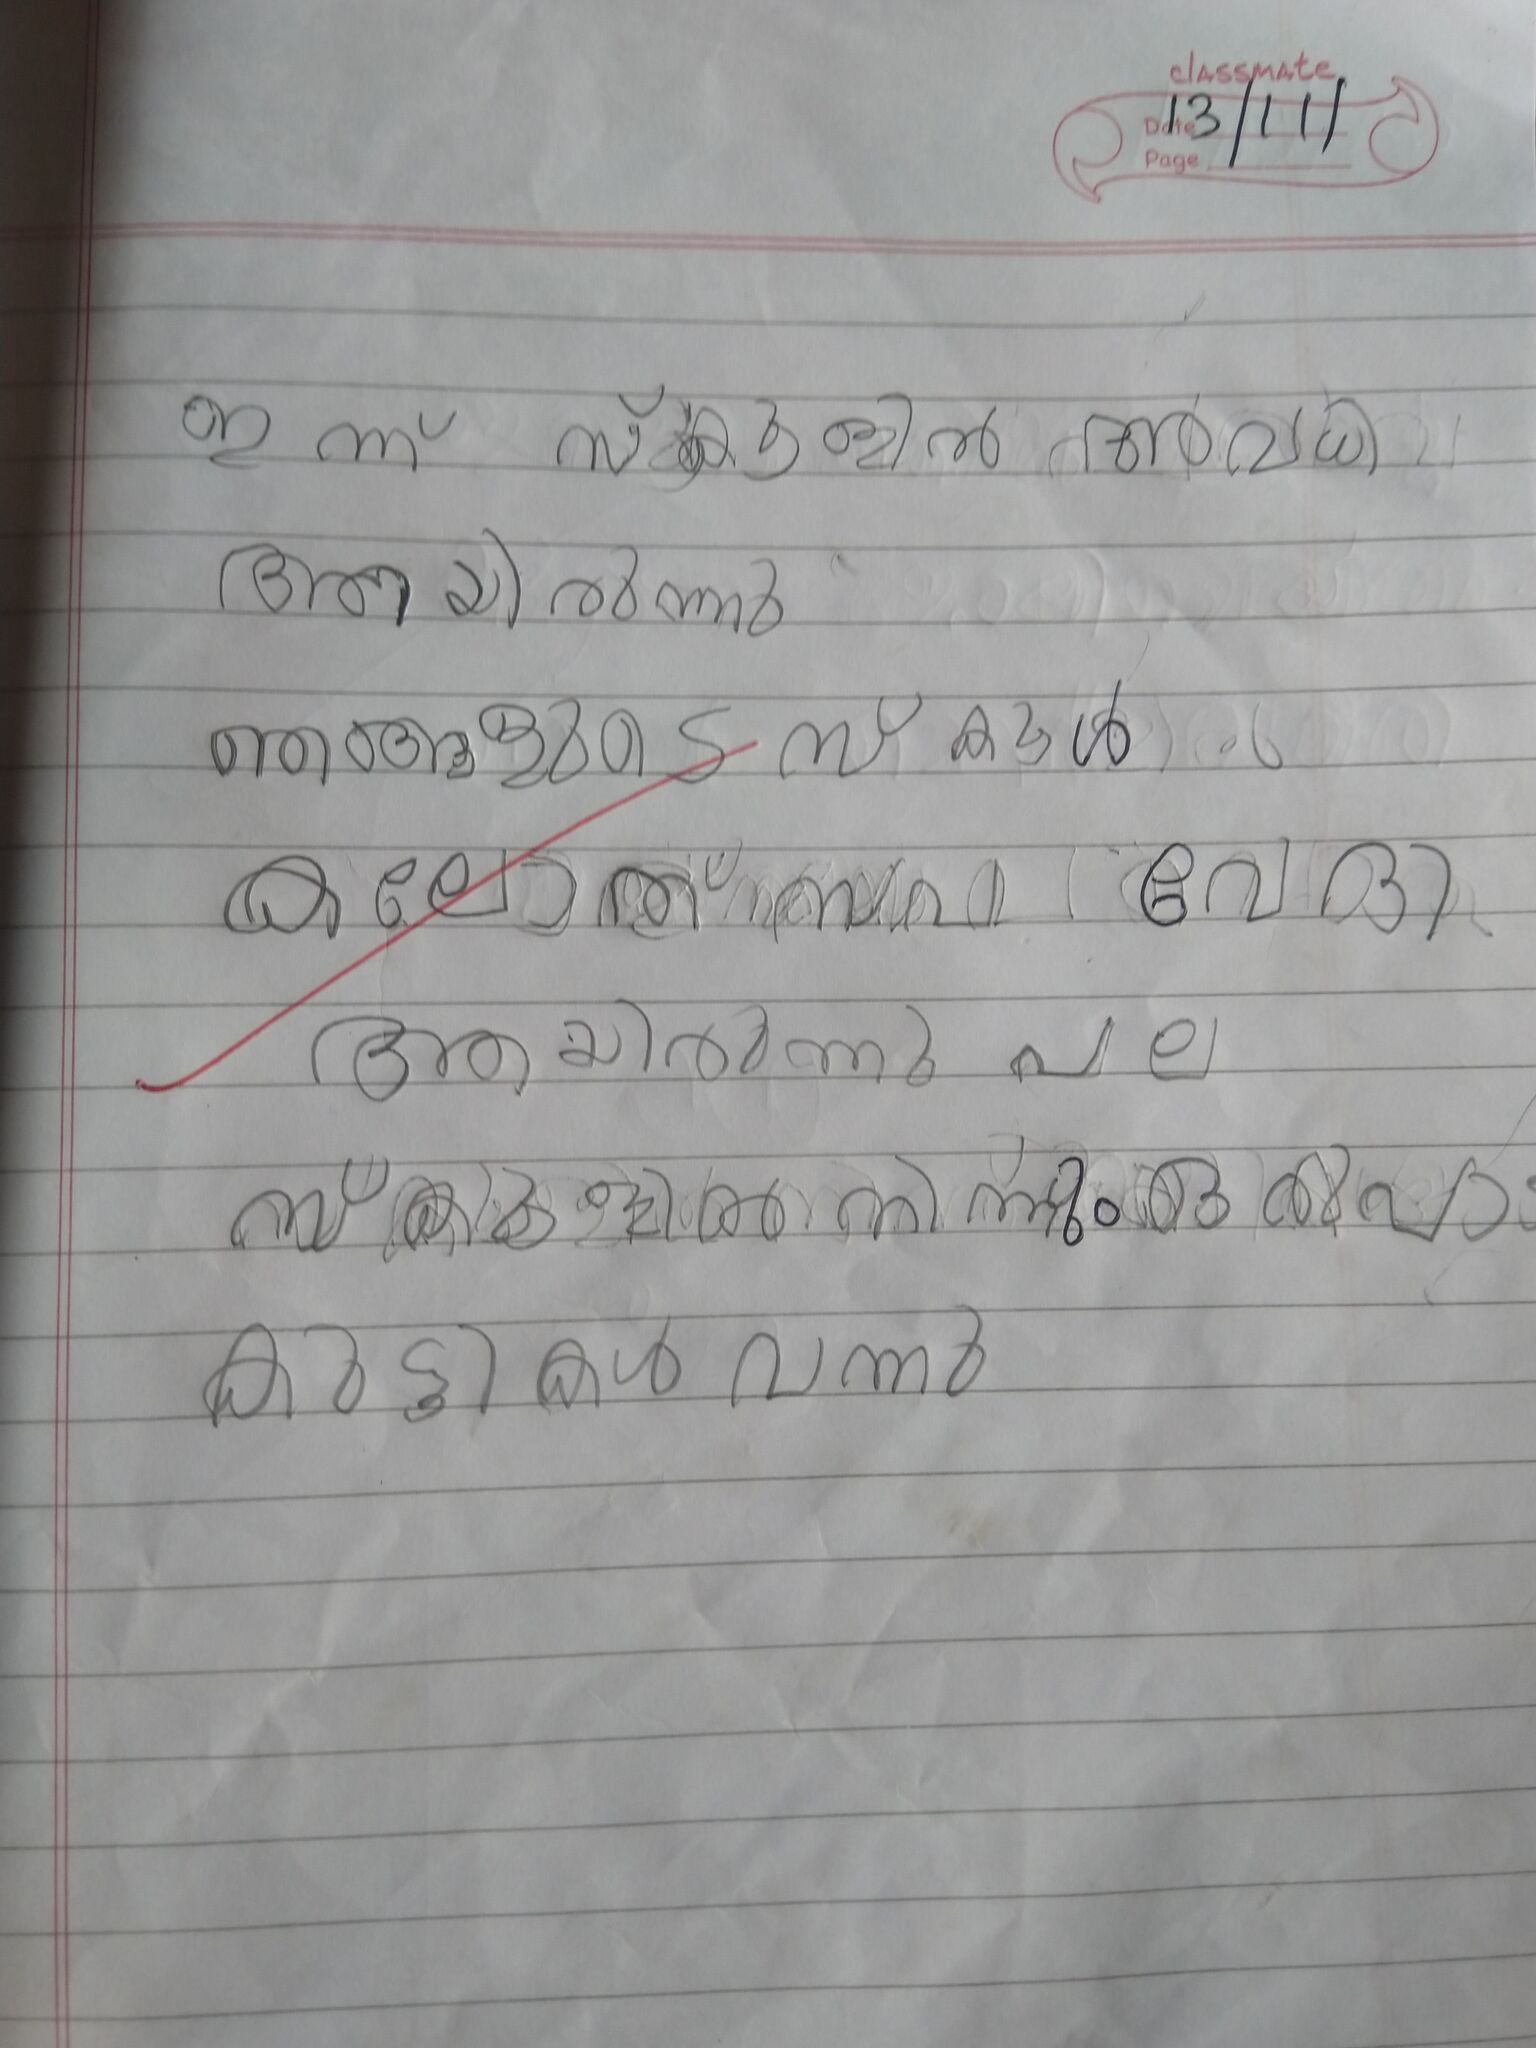 classmate
Date 13/11/
Page
ഇന്ന് സ്കൂളിൽ അവധി
ആയിരുന്നു
ഞങ്ങളുടെ സ്കൂൾ
കലോത്സവ വേദി
ആയിരുന്നു പല
സ്കൂളിൽ നിന്നും ഒരുപാട
കുട്ടികൾ വന്നു